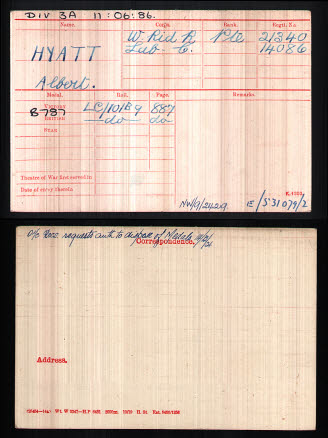 DIV 3A 11:06:86.
Name. Corps. Rank. Regtl. No.
HYATT W. Rid R. Pte 21340
Lab. C. 14086
Albert.
Medal. Roll. Page. Remarks.
B787 Victory LC/101B9 887
British do do
Star
Theatre of War first served in
Date of entry therein
K. 1380
NW/9/24229 IE/5310 79/2
O/c Recs requests auth to dispose of Medals
Correspondence.
Address.